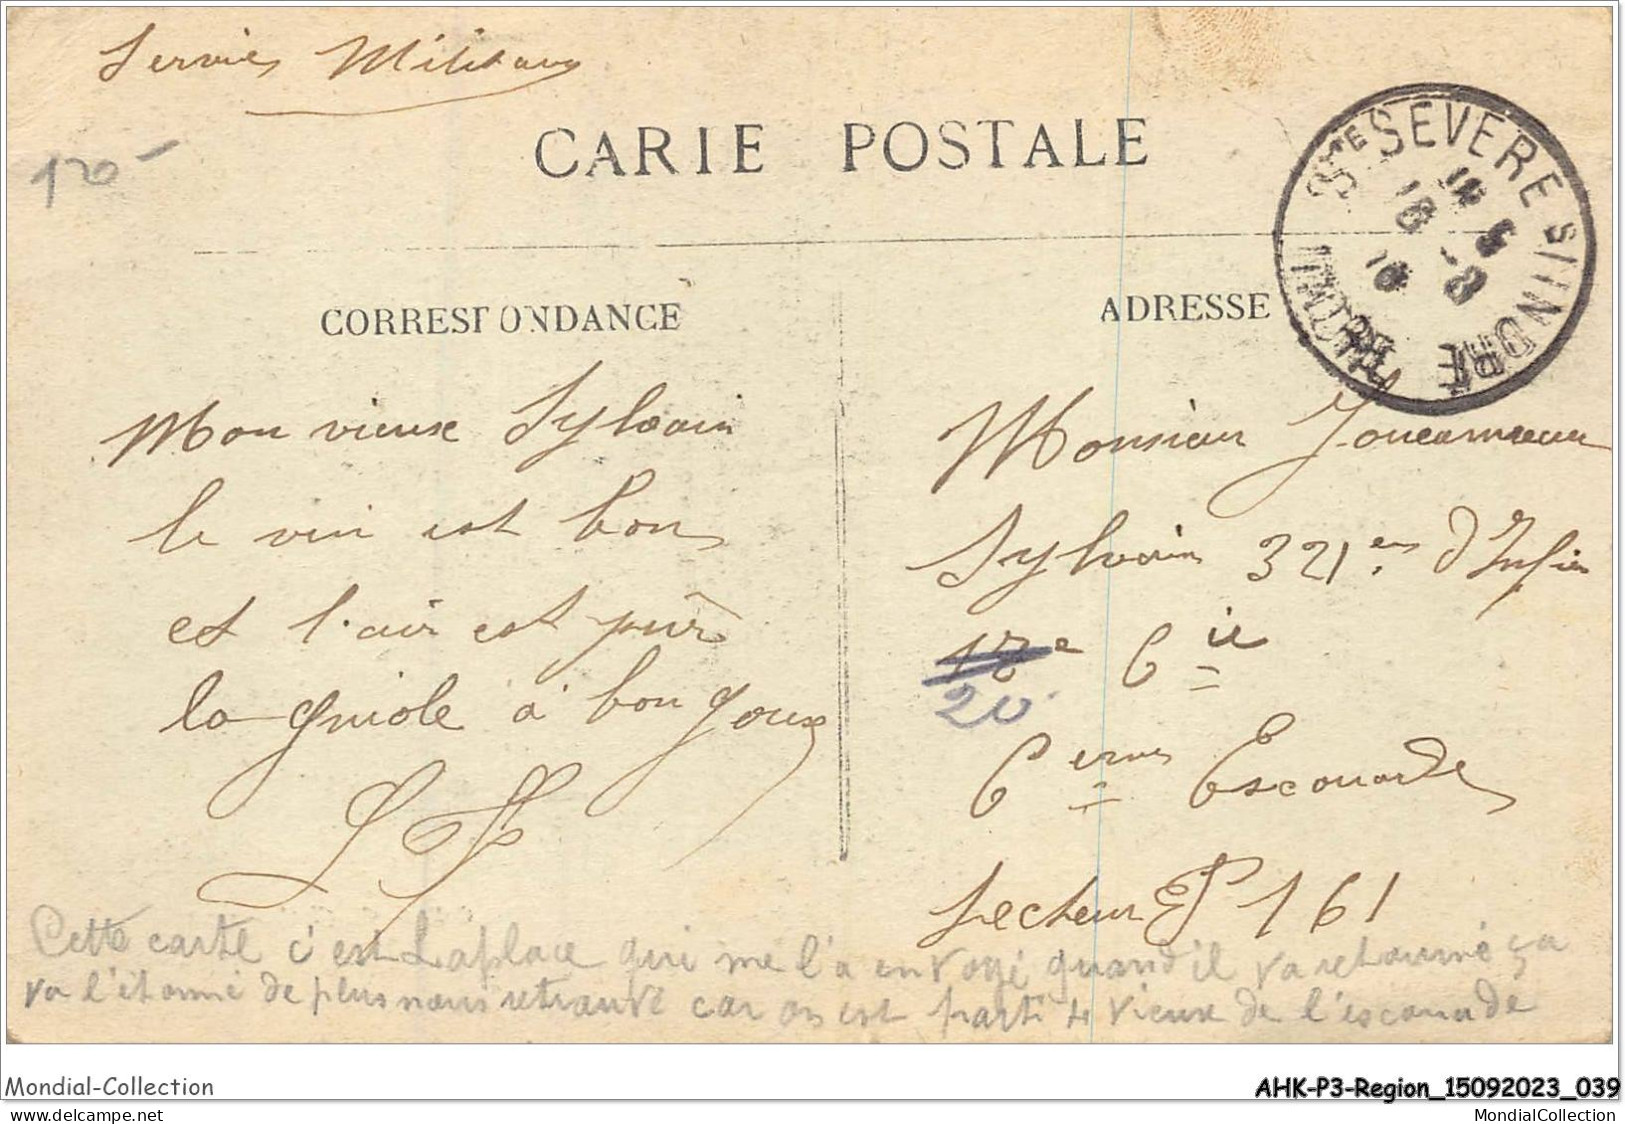 Service Militaire
120-
CARTE POSTALE
Ste SEVERE S INDRE
INDRE
18 - 8
CORRESPONDANCE
ADRESSE
Mon vieux Sylvain
le vin est bon
et l'air est pûr
la gniole a bon goux
Monsieur
Sylvain 321em d'Infie
17e Cie
20
6eme Escouade
Secteur P 161
Cette carte c'est Laplace qui me l'a envoyé quand il va retourné ça
va l'étonné de plus nous retrouvé car on est parti 4 vieux de l'escouade
Mondial-Collection
AHK-P3-Region_15092023_039
www.delcampe.net
MondialCollection